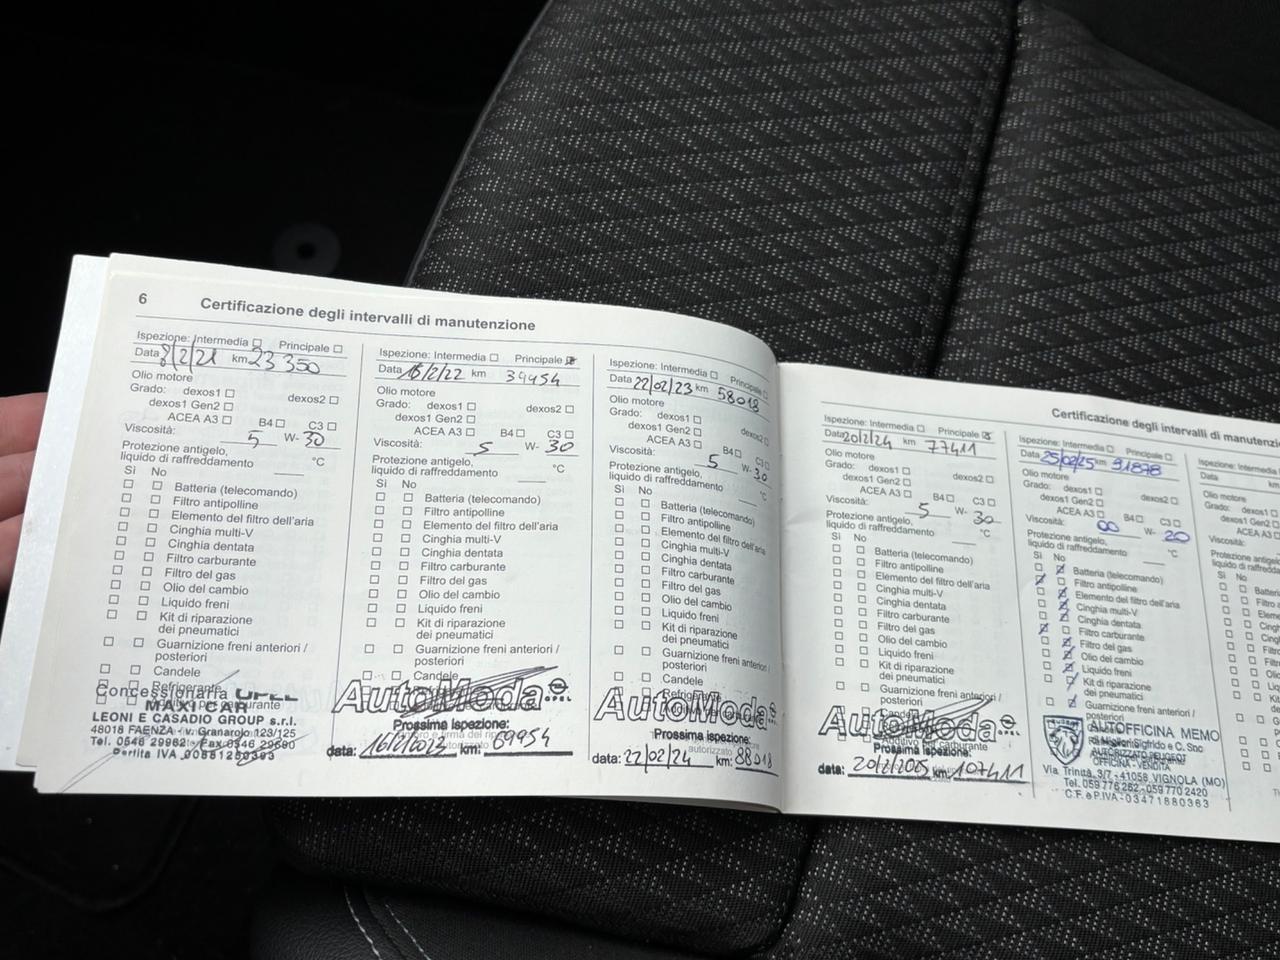 6 Certificazione degli intervalli di manutenzione
Ispezione: Intermedia Principale
Data 8/2/21 km 23 350
Olio motore
Grado: dexos1 dexos2
dexos1 Gen2
ACEA A3 B4 C3
Viscosità: 5 W- 30
Protezione antigelo,
liquido di raffreddamento °C
Sì No
Batteria (telecomando)
Filtro antipolline
Elemento del filtro dell'aria
Cinghia multi-V
Cinghia dentata
Filtro carburante
Filtro del gas
Olio del cambio
Liquido freni
Kit di riparazione
dei pneumatici
Guarnizione freni anteriori /
posteriori
Candele
Refrigerante
Concessionaria OPEL
MAXICAR
LEONI E CASADIO GROUP s.r.l.
48018 FAENZA - v. Granarolo 123/125
Tel. 0546 29962 - Fax 0546 29690
Partita IVA
Ispezione: Intermedia Principale
Data 16/2/22 km 39954
Olio motore
Grado: dexos1 dexos2
dexos1 Gen2
ACEA A3 B4 C3
Viscosità: 5 W- 30
Protezione antigelo,
liquido di raffreddamento °C
Sì No
Batteria (telecomando)
Filtro antipolline
Elemento del filtro dell'aria
Cinghia multi-V
Cinghia dentata
Filtro carburante
Filtro del gas
Olio del cambio
Liquido freni
Kit di riparazione
dei pneumatici
Guarnizione freni anteriori /
posteriori
Candele
AutoModa s.r.l.
Prossima ispezione:
data: 16/2/2023 km: 69954
Ispezione: Intermedia Principale
Data 22/02/23 km 58018
Olio motore
Grado: dexos1 dexos2
dexos1 Gen2
ACEA A3 B4 C3
Viscosità: 5 W- 30
Protezione antigelo,
liquido di raffreddamento °C
Sì No
Batteria (telecomando)
Filtro antipolline
Elemento del filtro dell'aria
Cinghia multi-V
Cinghia dentata
Filtro carburante
Filtro del gas
Olio del cambio
Liquido freni
Kit di riparazione
dei pneumatici
Guarnizione freni anteriori /
posteriori
Candele
Refrigerante
AutoModa
Prossima ispezione:
autorizzato
data: 22/02/24 km: 88018
Certificazione degli intervalli di manutenzi
Ispezione: Intermedia Principale
Data 20/2/24 km 77411
Olio motore
Grado: dexos1 dexos2
dexos1 Gen2
ACEA A3 B4 C3
Viscosità: 5 W- 30
Protezione antigelo,
liquido di raffreddamento °C
Sì No
Batteria (telecomando)
Filtro antipolline
Elemento del filtro dell'aria
Cinghia multi-V
Cinghia dentata
Filtro carburante
Filtro del gas
Olio del cambio
Liquido freni
Kit di riparazione
dei pneumatici
Guarnizione freni anteriori /
posteriori
AutoModa
Additivo per carburante
Prossima ispezione:
data: 20/2/2025 km: 107411
Ispezione: Intermedia Principale
Data 25/02/25 km 91878
Olio motore
Grado: dexos1 dexos2
dexos1 Gen2
ACEA A3 B4 C3
Viscosità: 00 W- 20
Protezione antigelo,
liquido di raffreddamento °C
Sì No
Batteria (telecomando)
Filtro antipolline
Elemento del filtro dell'aria
Cinghia multi-V
Cinghia dentata
Filtro carburante
Filtro del gas
Olio del cambio
Liquido freni
Kit di riparazione
dei pneumatici
Guarnizione freni anteriori /
posteriori
AUTOFFICINA MEMO
OFFICINA - VENDITA
Via Trinità, 3/7 - 41058 VIGNOLA (MO)
Tel. 059 776 262 - 059 770 2420
C.F. e P.IVA - 03471880363
Ispezione: Intermedia
Data km
Olio motore
Grado: dexos1
dexos1 Gen2
ACEA A3
Viscosità:
Protezione antigelo,
liquido di raffredda
Sì No